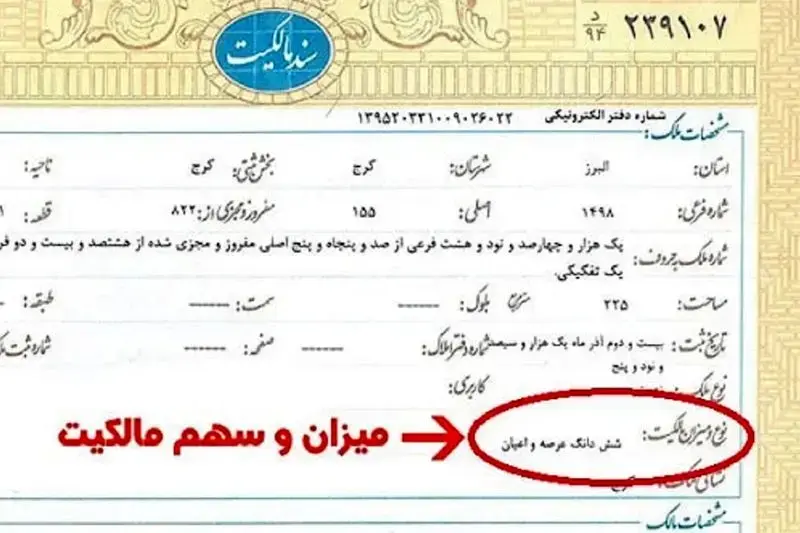 سند مالکیت
د
۹۴
۲۳۹۱۰۷
شماره دفتر الکترونیکی: ۱۳۹۵۲۰۳۳۱۰۰۹۰۲۶۰۲۲
مشخصات ملک:
استان: البرز شهرستان: کرج بخش ثبتی: کرج ناحیه:
شماره فرعی: ۱۴۹۸ اصلی: ۱۵۵ مفروز و مجزی از: ۸۲۲ قطعه:
شماره ملک به حروف: یک هزار و چهارصد و نود و هشت فرعی از صد و پنجاه و پنج اصلی مفروز و مجزی شده از هشتصد و بیست و دو
یک تفکیکی.
مساحت: ۲۲۵ مترمربع بلوک: ------ سمت: ------ طبقه:
تاریخ ثبت: بیست و دوم آذر ماه یک هزار و سیصد شماره دفتر املاک: ------ صفحه: ------ شماره ثبت
و نود و پنج
نوع ملک: کاربری:
نوع و میزان مالکیت: شش دانگ عرصه و اعیان
میزان و سهم مالکیت
نشانی ملک:
مشخصات مالک